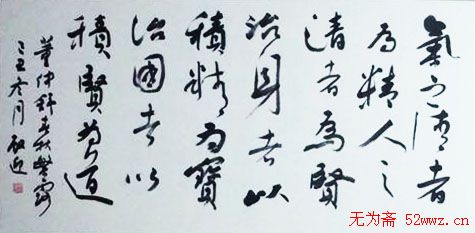 氣之清者
為精人之
清者為賢
治身者以
積精為寶
治國者以
積賢為道
董仲舒春秋繁露
己丑冬月
无为斋 52wwz.cn